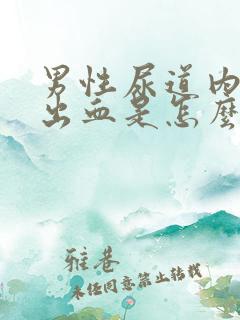 男性尿道内
出血是怎麼
雅巷
未经同意禁止转载